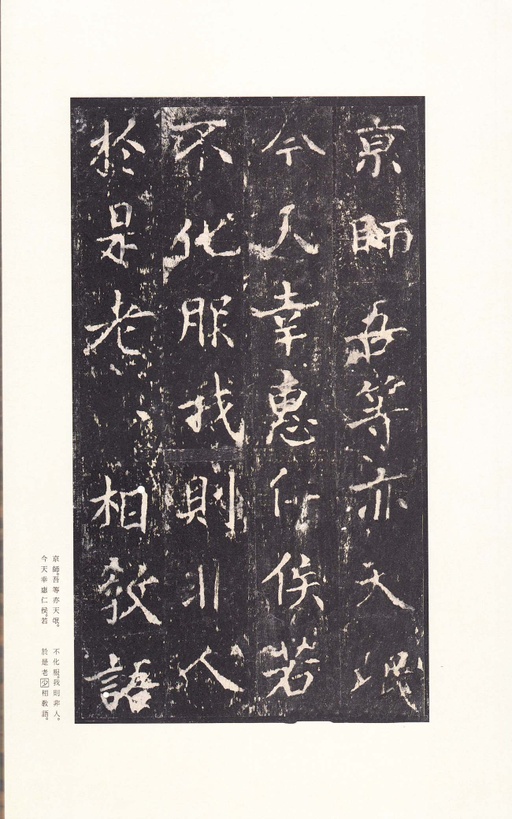 京師吾等亦天氓
今天幸惠仁侯若
不化服我則非人
於是老少相教語
京師。吾等亦天氓。
今天幸惠仁侯。若
不化服。我則非人。
於是老少相教語。